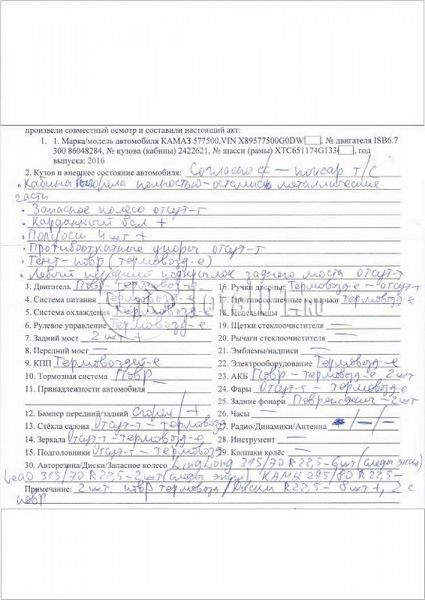 произвели совместный осмотр и составили настоящий акт:
1. 1. Марка/модель автомобиля КАМАЗ 577500,VIN X89577500G0DW, № двигателя ISB6.7
300 86048284, № кузова (кабины) 2422621, № шасси (рамы) XTC651174G133, год
выпуска: 2016
2. Кузов и внешнее состояние автомобиля: Согласно ф – пожар т/с
• Кабина сгорела полностью – остались металлические
части
• Запасное колесо отсут-т
• Карданный вал +
• Полуоси 4 шт +
• Противооткатные упоры отсут-т
• Тент – повр (термовозд-е)
• Левый передний подкрылок заднего моста отсут-т
3. Двигатель Повр термовозд-е
4. Система питания Термовозд-е
5. Система охлаждения Термовозд-е
6. Рулевое управление Термовозд-е
7. Задний мост 2 шт +
8. Передний мост —
9. КПП Термовоздей-е
10. Тормозная система Повр
11. Принадлежности автомобиля
12. Бампер передний/задний Сгорел / +
13. Стёкла салона Отсут-т – термовозд
14. Зеркала Отсут-т – термовозд-е
15. Подголовники Отсут-т – термовозд-е
16. Ручки дверные Термовозд-е – отсут-т
17. Противосолнечные козырьки термовозд-е
18. Пепельницы —
19. Щетки стеклоочистителя —
20. Рычаги стеклоочистителя —
21. Эмблемы/надписи —
22. Электрооборудование Термовозд-е
23. АКБ Повр – Термовозд-е 2 шт
24. Фары Отсут-т – термовозд-е
25. Задние фонари 2 шт
26. Часы —
27. Радио/Динамики/Антенна – / – / –
28. Инструмент —
29. Колпаки колёс —
30. Авторезина/Диски/Запасное колесо LingLong 315/70 R22,5 – 6 шт (следы экспл)
315/70 R22,5 – 2 шт (следы экспл), КАМА 295/80 R22,5
Примечание: 2 шт повр термовозд / Диски R22,5 – 8 шт +, 2 с
повр